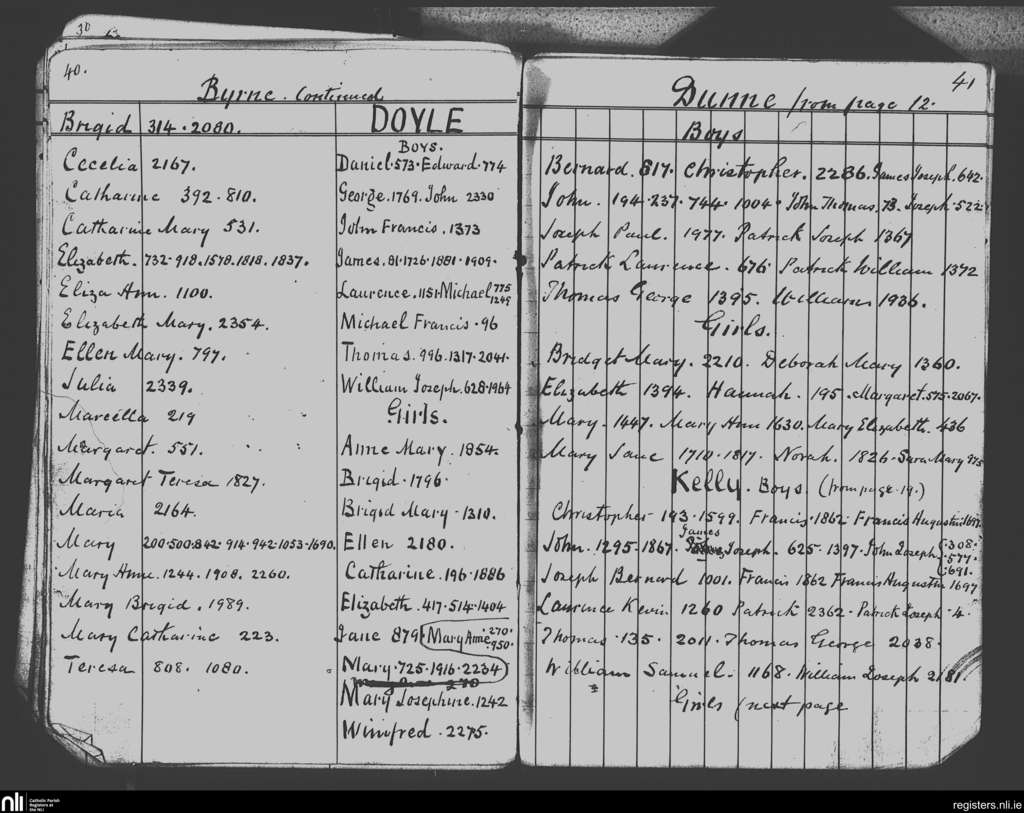 30
40.
Byrne. Continued
Brigid 314 · 2080.
Cecelia 2167.
Catharine 392 · 810.
Catharine Mary 531.
Elizabeth. 732 · 918. 1578. 1818. 1837.
Eliza Ann. 1100.
Elizabeth Mary. 2354.
Ellen Mary. 797.
Julia 2339.
Marcella 219
Margaret. 551.
Margaret Teresa 1827.
Maria 2164.
Mary 200·500·842· 914·942·1053·1690.
Mary Anne. 1244. 1908. 2260.
Mary Brigid. 1989.
Mary Catharine 223.
Teresa 808. 1080.
DOYLE
Boys.
Daniel·573·Edward·774
George. 1769. John 2330
John Francis. 1373
James. 81·1726·1881·1909·
Laurence. 1151·Michael 775
1249
Michael Francis · 96
Thomas. 996·1317·2041·
William Joseph. 628·1964
Girls.
Anne Mary. 1854.
Brigid · 1796·
Brigid Mary · 1310.
Ellen 2180.
Catharine. 196·1886
Elizabeth. 417·514·1404
Jane 879· Mary Anne · 270·
· 950·
Mary · 725·1916·2234
Mary Josephine. 1242
Winifred. 2275.
41
Dunne from page 12.
Boys
Bernard. 817. Christopher. 2286. James Joseph. 642.
John. 194·237· 744· 1004· John Thomas. 73. Joseph·522·
Joseph Paul. 1977. Patrick Joseph 1367
Patrick Laurence. 676· Patrick William 1372
Thomas George 1395. William 1936.
Girls.
Bridget Mary. 2210. Deborah Mary 1360.
Elizabeth 1394. Hannah. 195. Margaret. 575·2067.
Mary. 1447. Mary Ann 1630. Mary Elizabeth. 436
Mary Jane 1710·1817. Norah. 1826·Sara Mary 975
Kelly. Boys (from page 19.)
Christopher 193·1599. Francis·1862 Francis Augustin 1697.
James
John. 1295·1867. Joseph. 625·1397·John Joseph ·308·
·577·
·691·
Joseph Bernard 1001. Francis 1862 Francis Augustin 1697
Laurence Kevin 1260 Patrick 2362·Patrick Joseph·4·
Thomas·135· 2011·Thomas George 2038·
William Samuel. 1168·William Joseph 2181
Girls (next page
nli
Catholic Parish
Registers at
the NLI
registers.nli.ie